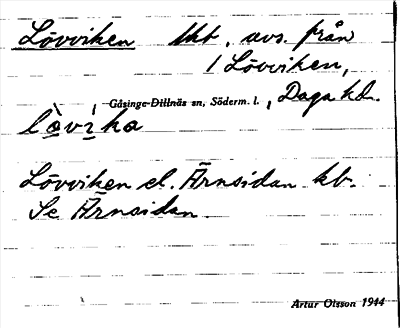 Lövviken lkb. avs. från
1 Lövviken,
Gåsinge-Dillnäs sn, Söderm. l., Daga hd.
lȯ̀vìka
Lövviken el. Ärnsidan kb.
Se Ärnsidan
Artur Olsson 1944